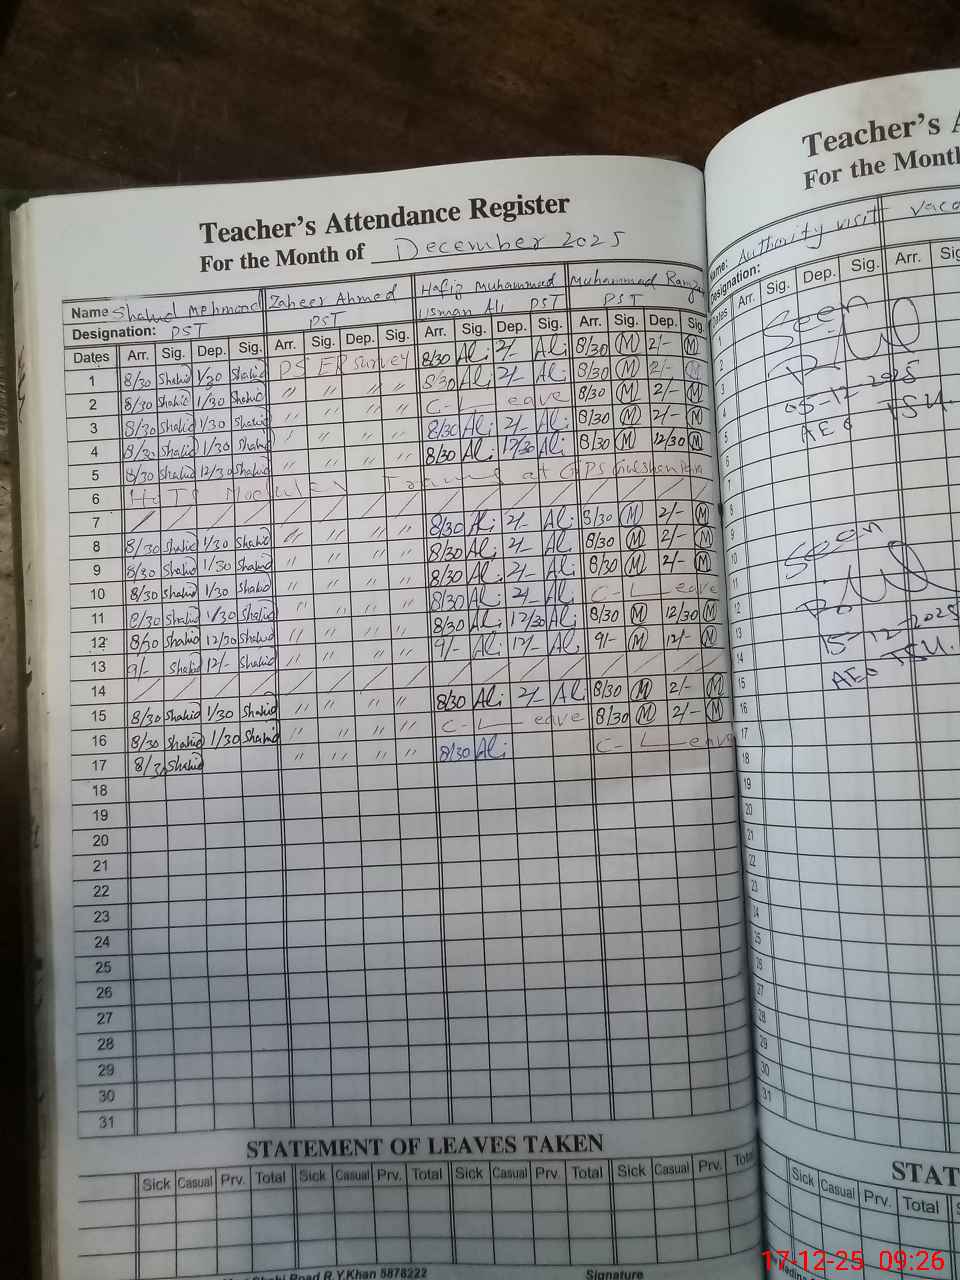 Teacher's Attendance Register
For the Month of December 2025
Name Shahid Mehmood Zaheer Ahmed Hafiz Muhammad Usman Ali PST Muhammad
Designation: PST PST PST
Dates Arr. Sig. Dep. Sig. Arr. Sig. Dep. Sig. Arr. Sig. Dep. Sig. Arr. Sig. Dep. Sig.
1 8/30 Shahid 1/30 Shahid PS ER Survey 8/30 Ali 2/- Ali 8/30 M 2/- M
2 8/30 Shahid 1/30 Shahid " " " " 8/30 Ali 2/- Ali 8/30 M 2/- M
3 8/30 Shahid 1/30 Shahid " " " " C-Leave 8/30 M 2/- M
4 8/30 Shahid 1/30 Shahid " " " " 8/30 Ali 2/- Ali 8/30 M 2/- M
5 8/30 Shahid 12/30 Shahid " " " " 8/30 Ali 12/30 Ali 8/30 M 12/30 M
6 Training at GPS
7
8 8/30 Shahid 1/30 Shahid " " " " 8/30 Ali 2/- Ali 8/30 M 2/- M
9 8/30 Shahid 1/30 Shahid " " " " 8/30 Ali 2/- Ali 8/30 M 2/- M
10 8/30 Shahid 1/30 Shahid " " " " 8/30 Ali 2/- Ali 8/30 M 2/- M
11 8/30 Shahid 1/30 Shahid " " " " 8/30 Ali 2/- Ali C-Leave
12 8/30 Shahid 12/30 Shahid " " " " 8/30 Ali 12/30 Ali 8/30 M 12/30 M
13 9/- Shahid 12/- Shahid " " " " 9/- Ali 12/- Ali 9/- M 12/- M
14
15 8/30 Shahid 1/30 Shahid " " " " 8/30 Ali 2/- Ali 8/30 M 2/- M
16 8/30 Shahid 1/30 Shahid " " " " C-Leave 8/30 M 2/- M
17 8/30 Shahid " " " " 8/30 Ali C-Leave
18
19
20
21
22
23
24
25
26
27
28
29
30
31
STATEMENT OF LEAVES TAKEN
Sick Casual Prv. Total Sick Casual Prv. Total Sick Casual Prv. Total Sick Casual Prv. Total
Road R.Y.Khan 5878222 Signature
Teacher's A
For the Month
Name: Authority visit
Designation:
Dates Arr. Sig. Dep. Sig. Arr.
1
2
3
4
5
6
7
8
9
10
11
12
13
14
15
16
17
18
19
20
21
22
23
24
25
26
27
28
29
30
31
Seen
05-12-2025
AEO TSU.
Seen
15-12-2025
AEO TSU.
STAT
Sick Casual Prv. Total
17-12-25 09:26